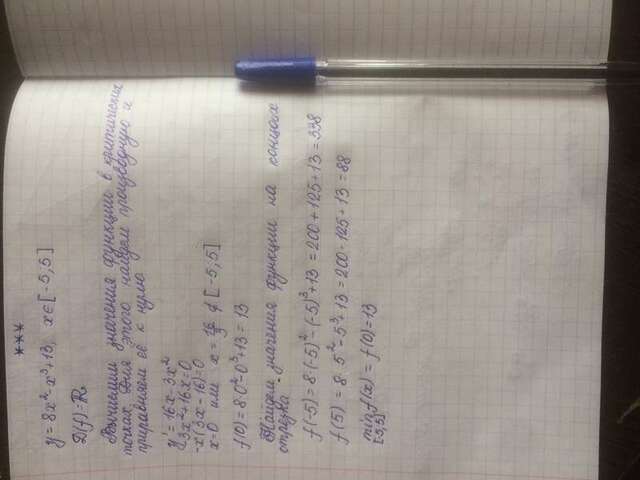 ***
y = 8x² - x³ + 13, x ∈ [-5; 5]
D(f) = ℝ
Вычислим значения функции в критических
точках. Для этого найдем производную и
приравняем её к нулю
y' = 16x - 3x²
-3x² + 16x = 0
-x(3x - 16) = 0
x = 0 или x = 16/3 ∉ [-5; 5]
f(0) = 8·0² - 0³ + 13 = 13
Найдем значения функции на концах
отрезка
f(-5) = 8·(-5)² - (-5)³ + 13 = 200 + 125 + 13 = 338
f(5) = 8·5² - 5³ + 13 = 200 - 125 + 13 = 88
min f(x) = f(0) = 13
[-5;5]